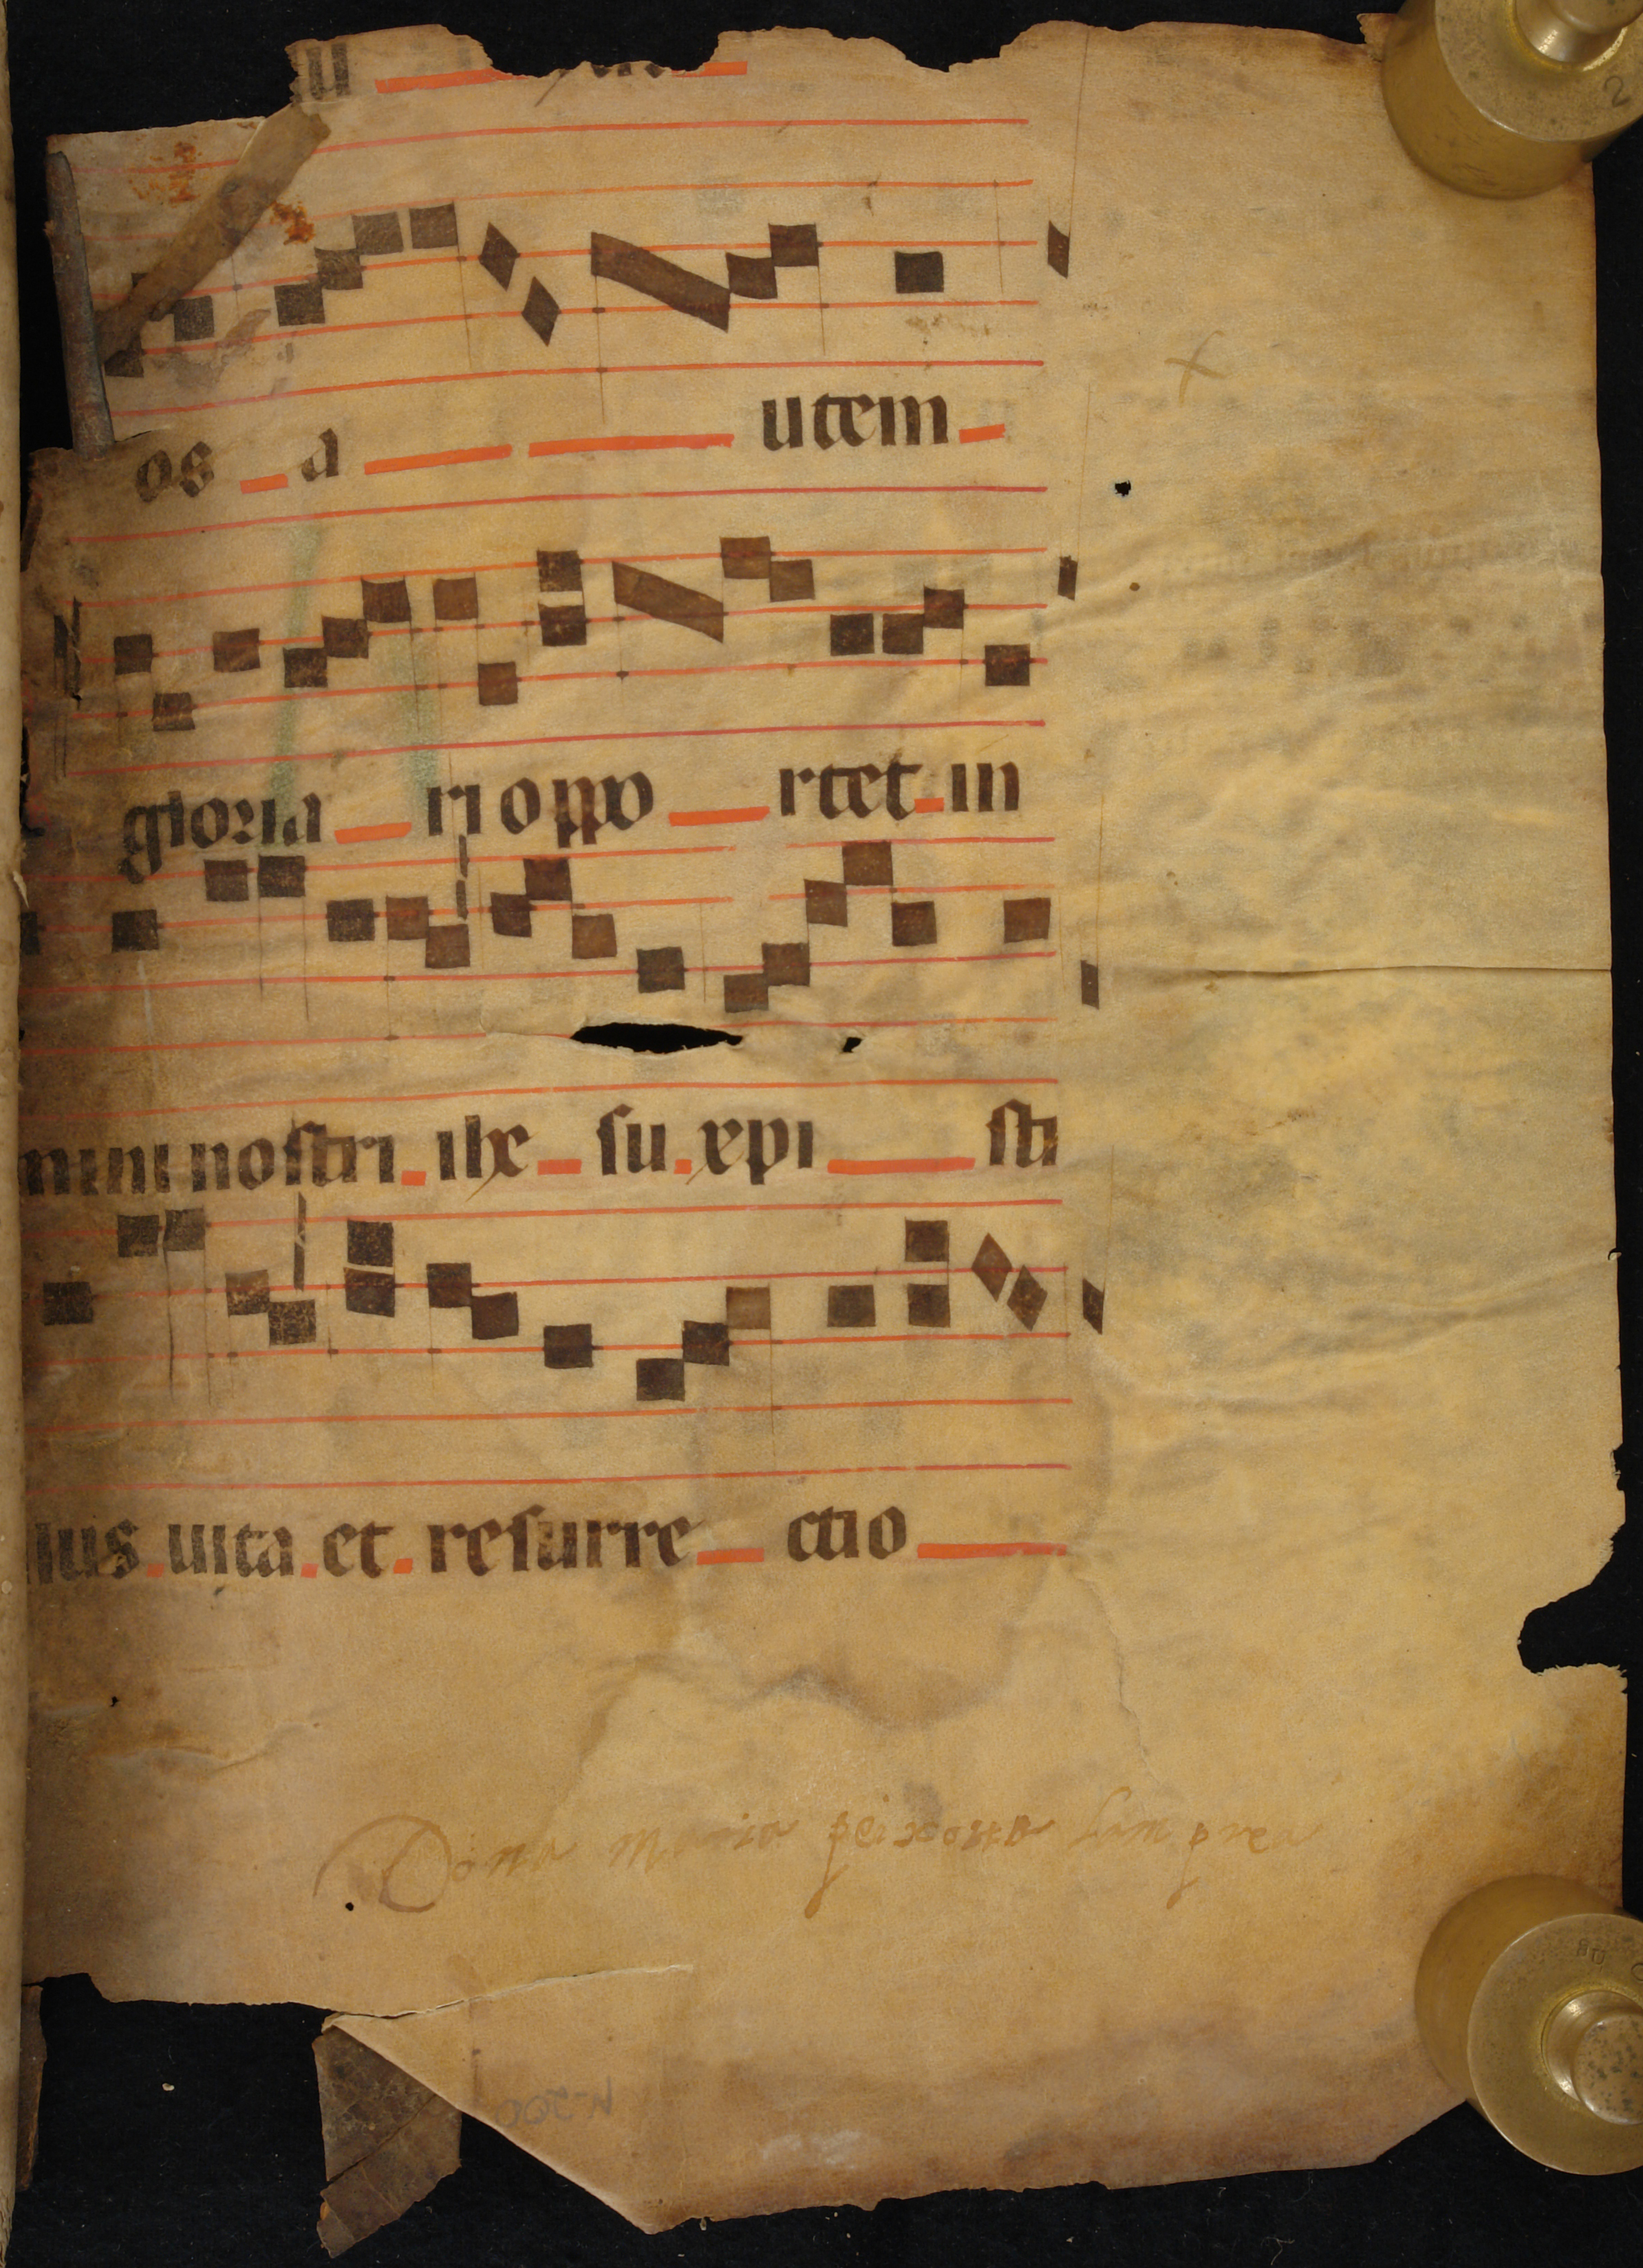 u
os a utem
gloria ri oppo rtet in
mini nostri ihe su xpi sti
lus uita et resurre ctio
Dona maria peixotta Lamprea